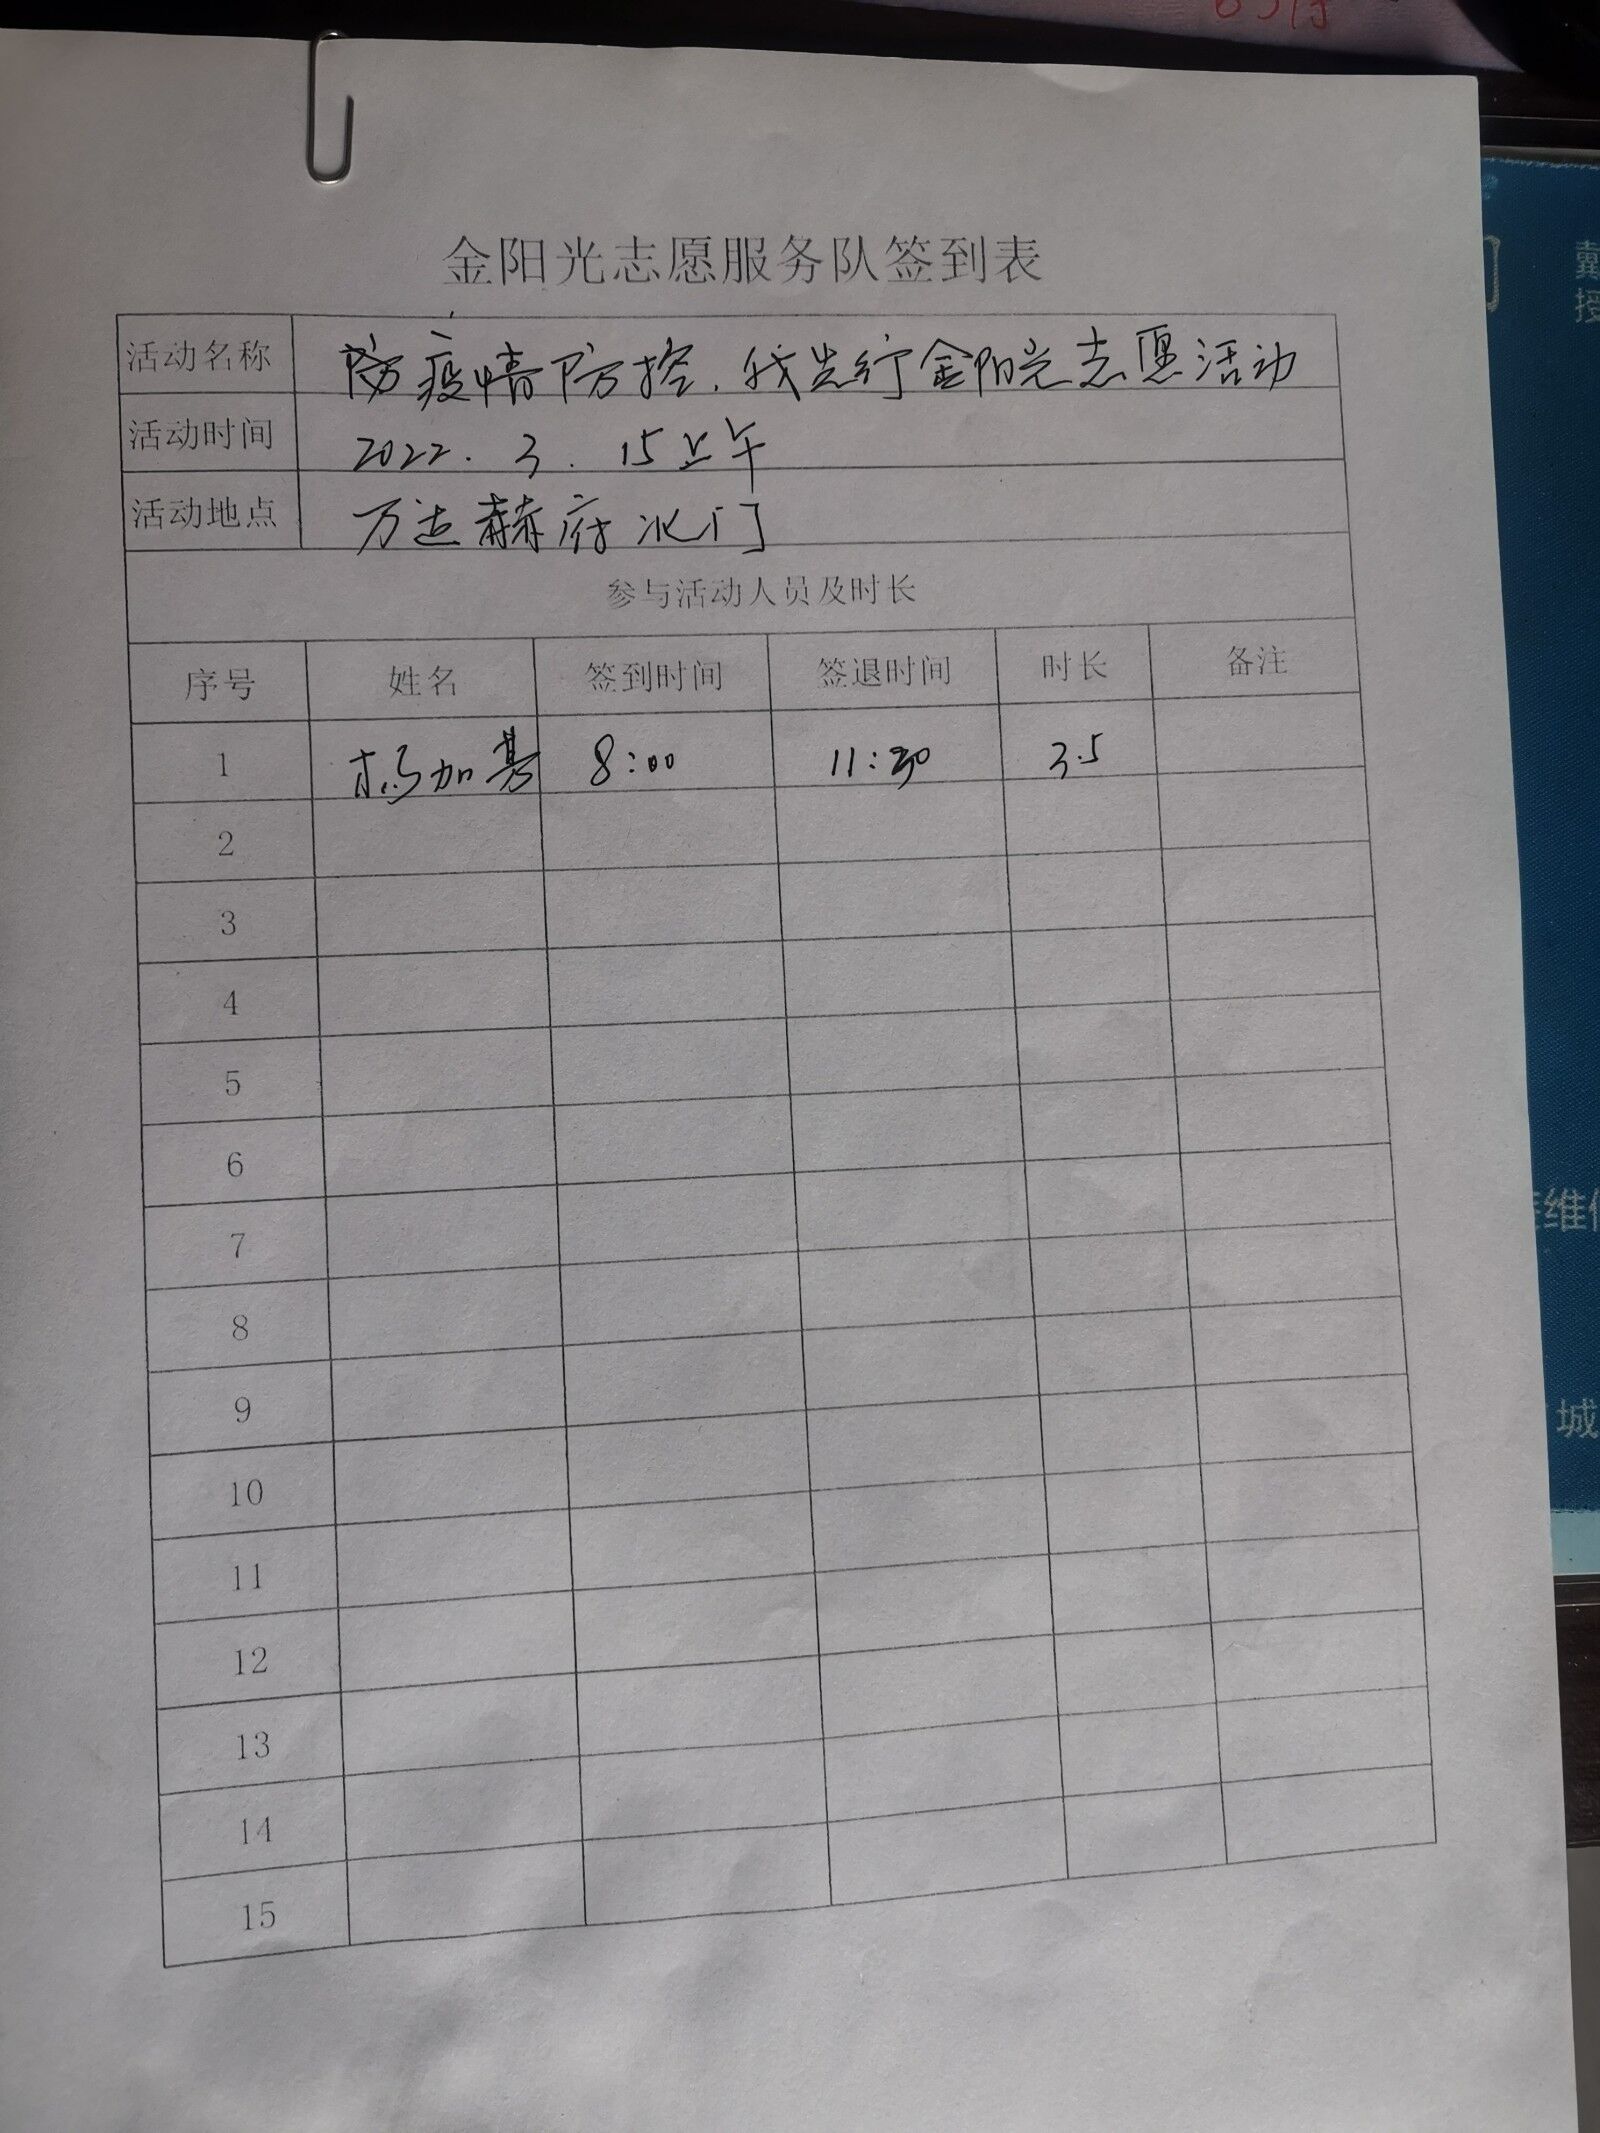 金阳光志愿服务队签到表
活动名称 防疫情防控，我先行金阳光志愿活动
活动时间 2022.3.15上午
活动地点 万达赫府北门
参与活动人员及时长
序号 姓名 签到时间 签退时间 时长 备注
1 杨加基 8:00 11:30 3.5
2
3
4
5
6
7
8
9
10
11
12
13
14
15
维
城